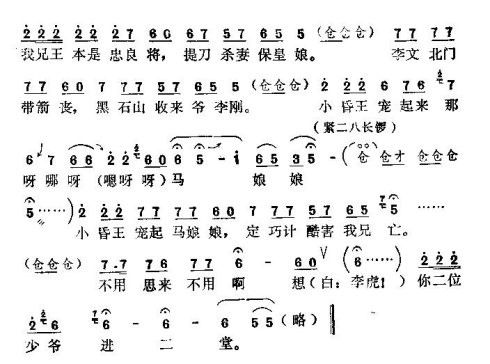 2̇2̇2̇ 2̇2̇ 2̇2̇ 27 67 77 77 57 65 5 (仓仓仓) 77 77
我兄王 本是忠良将，提刀 杀妻 保皇 娘。 李文 北门
77 60 77 77 57 65 5 (仓仓仓) 2̇ 2̇2̇ 6 76 7
带箭 丧，黑 石山 收来 爷 李刚。 小 昏王 宠 起来 那
(紧二八长锣)
6 7 66 2̇ 2̇ 60 6 5 - i 65 35 - (仓 仓才 仓仓仓
呀 哪 呀 (嗯呀 呀) 马 娘 娘
5 ……) 2̇ 2̇2̇ 77 77 60 7 77 57 65 5 ……
小 昏王 宠起 马娘 娘， 定 巧计 酷害 我兄 亡。
(仓仓仓) 7·7 76 77 6 - 60 (6 ……) 2̇2̇2̇
不用 恩来 不用 啊 想 (白：李虎！) 你二位
2̇2̇6 6 - 6 - 6 55 (略)
少爷 进 二 堂。